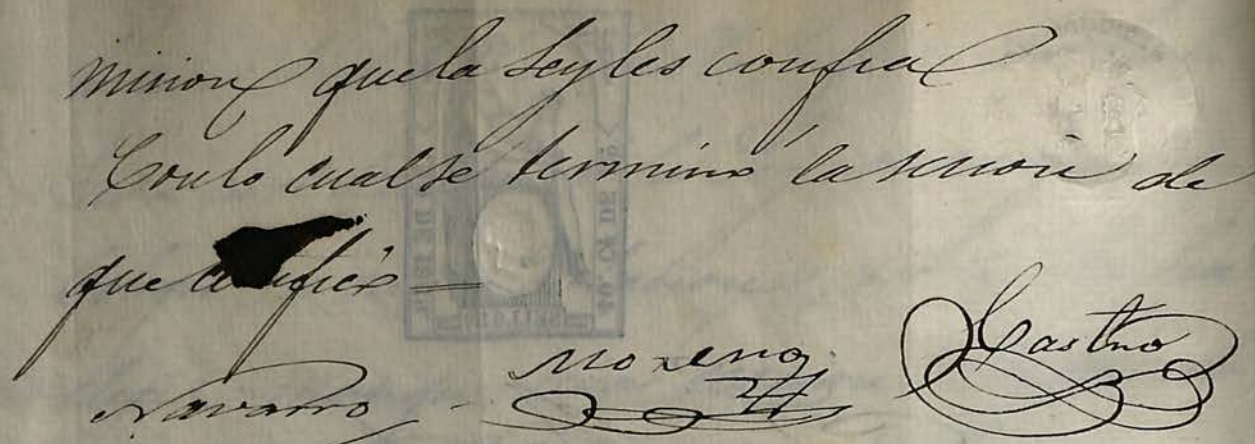 mision que la Ley les confia
Con lo cual se terminó la sesion de
que certifico =
Navarro - Moreno Castro